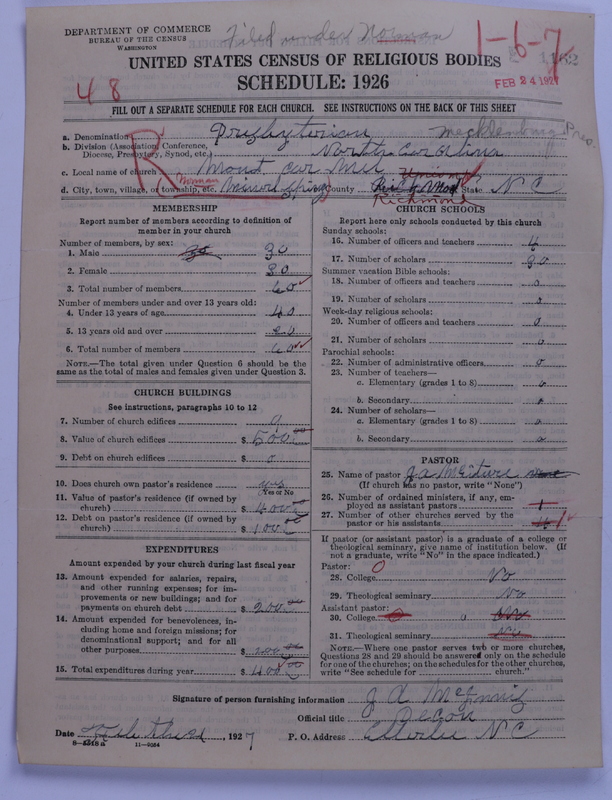 DEPARTMENT OF COMMERCE
BUREAU OF THE CENSUS
WASHINGTON
Filed under Norman
1-6-7
UNITED STATES CENSUS OF RELIGIOUS BODIES
SCHEDULE: 1926
48
FEB 24 1927
FILL OUT A SEPARATE SCHEDULE FOR EACH CHURCH. SEE INSTRUCTIONS ON THE BACK OF THIS SHEET
R
a. Denomination Presbyterian Mecklenburg Pres.
b. Division (Association, Conference, Diocese, Presbytery, Synod, etc.) North Carolina "
c. Local name of church Mount Carmel
d. City, town, village, or township, etc. Norman County State N C
Richmond
MEMBERSHIP
Report number of members according to definition of member in your church
Number of members, by sex:
1. Male 30
2. Female 30
3. Total number of members 60
Number of members under and over 13 years old:
4. Under 13 years of age 40
5. 13 years old and over 20
6. Total number of members 60
NOTE.—The total given under Question 6 should be the same as the total of males and females given under Question 3.
CHURCH BUILDINGS
See instructions, paragraphs 10 to 12
7. Number of church edifices
8. Value of church edifices $ 500.00
9. Debt on church edifices $ 0
10. Does church own pastor's residence yes
(Yes or No)
11. Value of pastor's residence (if owned by church) $
12. Debt on pastor's residence (if owned by church) $
EXPENDITURES
Amount expended by your church during last fiscal year
13. Amount expended for salaries, repairs, and other running expenses; for improvements or new buildings; and for payments on church debt $ 200.00
14. Amount expended for benevolences, including home and foreign missions; for denominational support; and for all other purposes $ 200.00
15. Total expenditures during year $ 400.00
CHURCH SCHOOLS
Report here only schools conducted by this church
Sunday schools:
16. Number of officers and teachers 4
17. Number of scholars 30
Summer vacation Bible schools:
18. Number of officers and teachers 0
19. Number of scholars 0
Week-day religious schools:
20. Number of officers and teachers 0
21. Number of scholars 0
Parochial schools:
22. Number of administrative officers 0
23. Number of teachers—
a. Elementary (grades 1 to 8) 0
b. Secondary 0
24. Number of scholars—
a. Elementary (grades 1 to 8) 0
b. Secondary 0
PASTOR
25. Name of pastor J. A. None
(If church has no pastor, write "None")
26. Number of ordained ministers, if any, employed as assistant pastors 1
27. Number of other churches served by the pastor or his assistants
If pastor (or assistant pastor) is a graduate of a college or theological seminary, give name of institution below. (If not a graduate, write "No" in the space indicated.)
Pastor: 0
28. College No
29. Theological seminary No
Assistant pastor:
30. College 0
31. Theological seminary
NOTE.—Where one pastor serves two or more churches, Questions 28 and 29 should be answered only on the schedule for one of the churches; on the schedules for the other churches, write "See schedule for church."
Signature of person furnishing information J A
Official title Decon
Date 1927 P. O. Address Ellerbe N C
8-4318a 11-9064